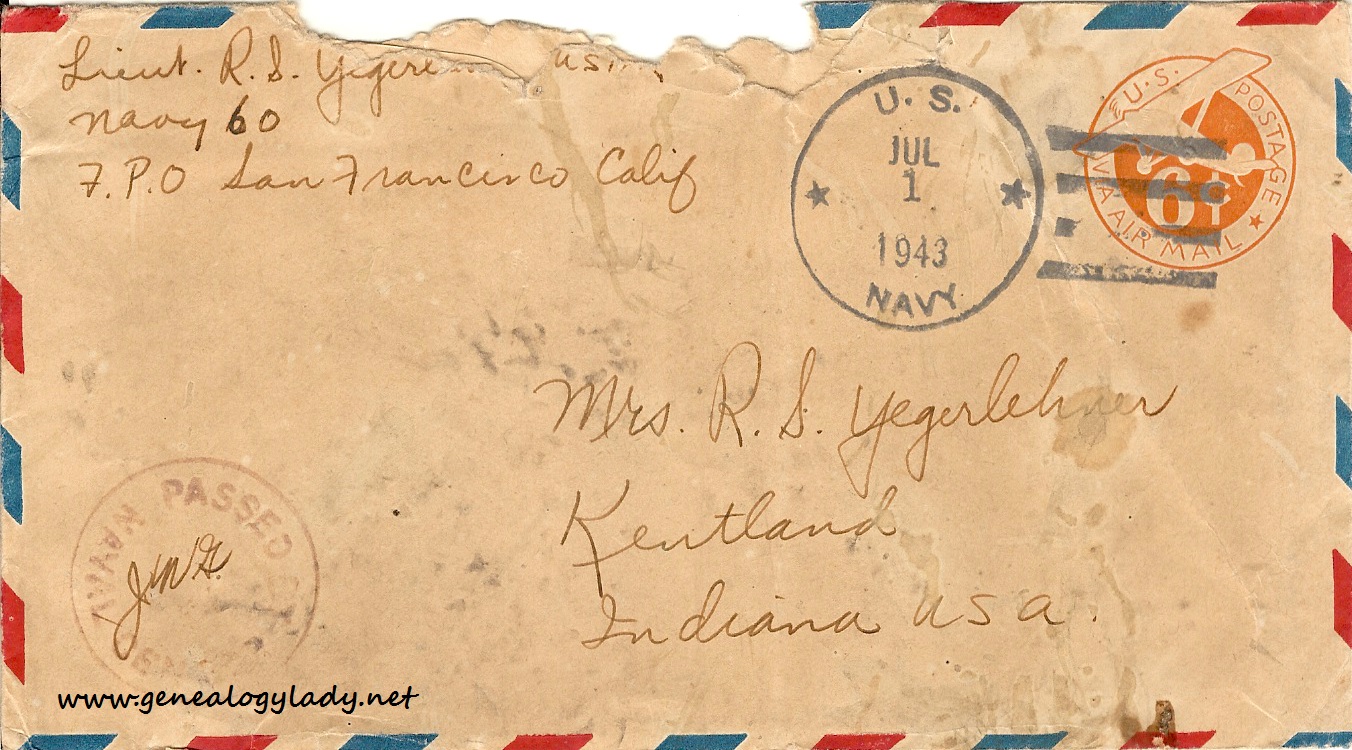 Lieut. R. S. Yegerle
Navy 60
F.P.O San Francisco Calif
U. S.
JUL
1
1943
NAVY
U.S. POSTAGE
6¢
VIA AIR MAIL
Mrs. R. S. Yegerlehner
Kentland
Indiana USA.
PASSED BY
NAVAL
J.W.G.
www.genealogylady.net